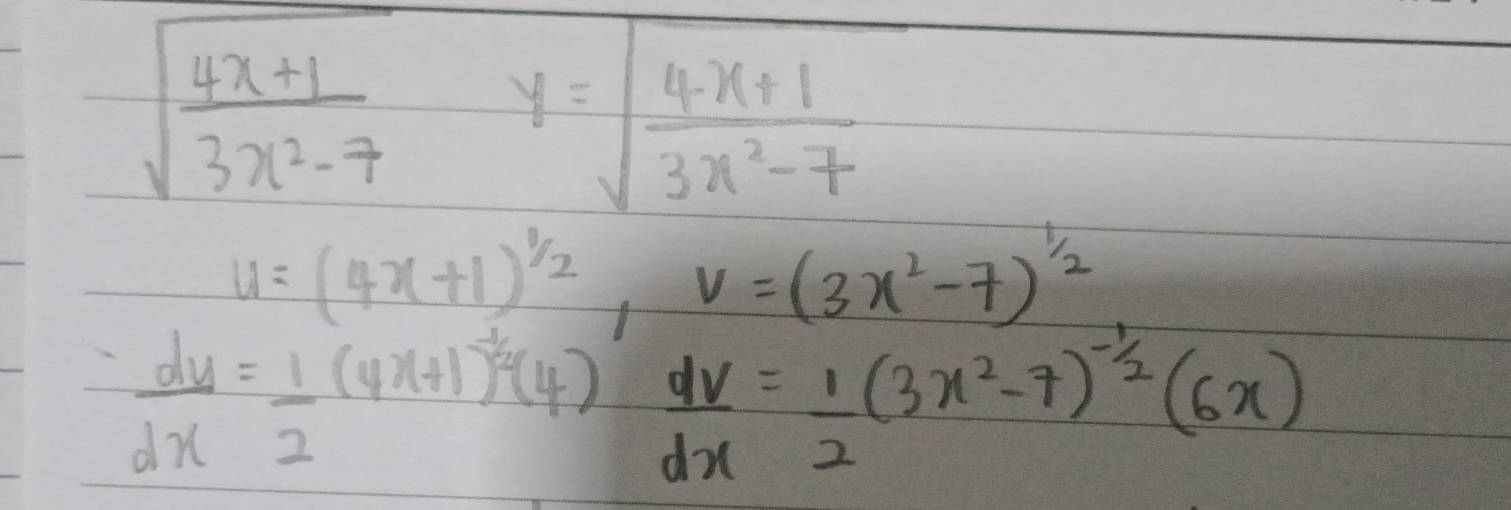 √((4x+1)/(3x²-7)) y = √((4x+1)/(3x²-7))
u = (4x+1)^1/2 , v = (3x²-7)^1/2
du/dx = 1/2 (4x+1)^-1/2 (4) dv/dx = 1/2 (3x²-7)^-1/2 (6x)